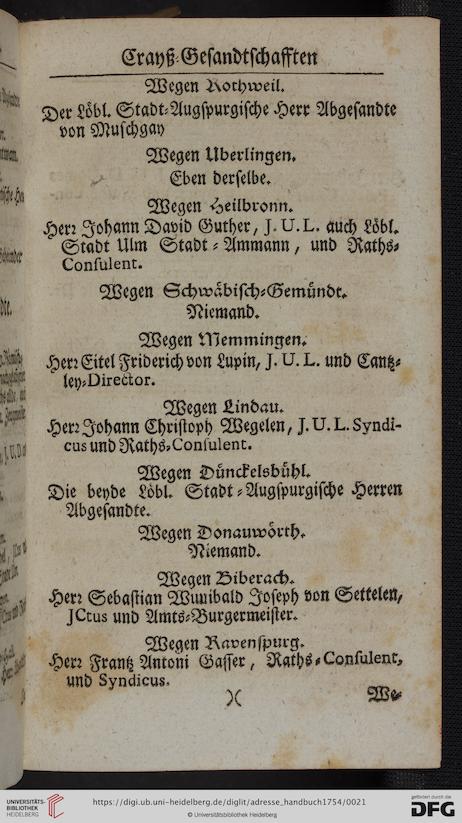 Crayß-Gesandtschafften
Wegen Rothweil.
Der Löbl. Stadt-Augspurgische Herr Abgesandte
von Muschgay
Wegen Uberlingen.
Eben derselbe.
Wegen Heilbronn.
Herr Johann David Guther, J. U. L. auch Löbl.
Stadt Ulm Stadt-Ammann, und Raths-
Consulent.
Wegen Schwäbisch-Gemündt.
Niemand.
Wegen Memmingen.
Herr Eitel Friderich von Lupin, J. U. L. und Cantz-
ley-Director.
Wegen Lindau.
Herr Johann Christoph Wegelen, J. U. L. Syndi-
cus und Raths-Consulent.
Wegen Dünckelsbühl.
Die beyde Löbl. Stadt-Augspurgische Herren
Abgesandte.
Wegen Donauwörth.
Niemand.
Wegen Biberach.
Herr Sebastian Wunibald Joseph von Settelen,
JCtus und Amts-Burgermeister.
Wegen Ravenspurg.
Herr Frantz Antoni Gasser, Raths-Consulent,
und Syndicus.
)( We-
UNIVERSITÄTS-
BIBLIOTHEK
HEIDELBERG
https://digi.ub.uni-heidelberg.de/diglit/adresse_handbuch1754/0021
© Universitätsbibliothek Heidelberg
gefördert durch die
DFG